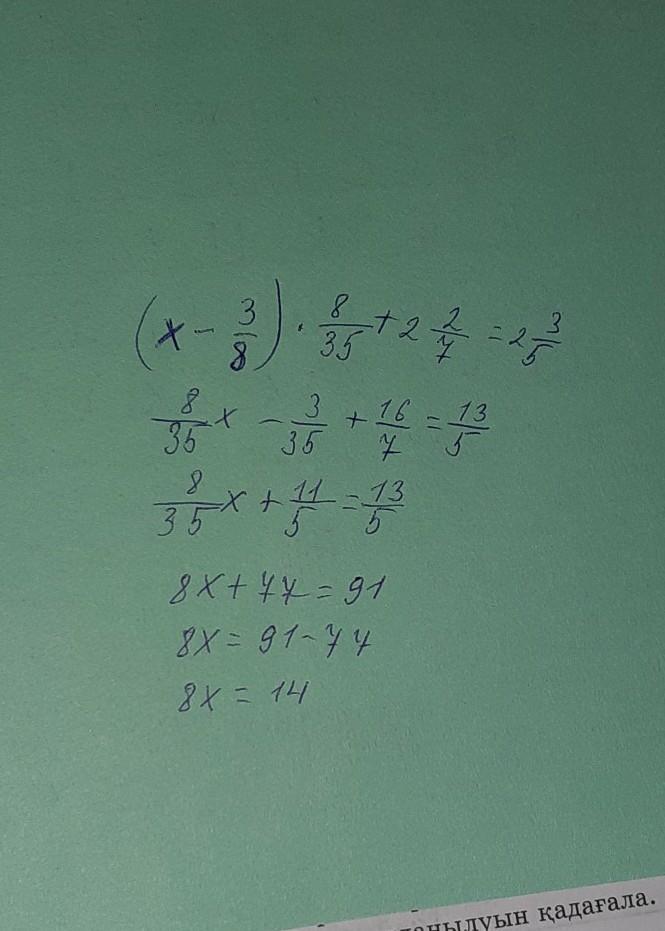 (x - 3/8) · 8/35 + 2 2/7 = 2 3/5
8/35 x - 3/35 + 16/7 = 13/5
8/35 x + 11/5 = 13/5
8x + 77 = 91
8x = 91 - 77
8x = 14
қадағала.